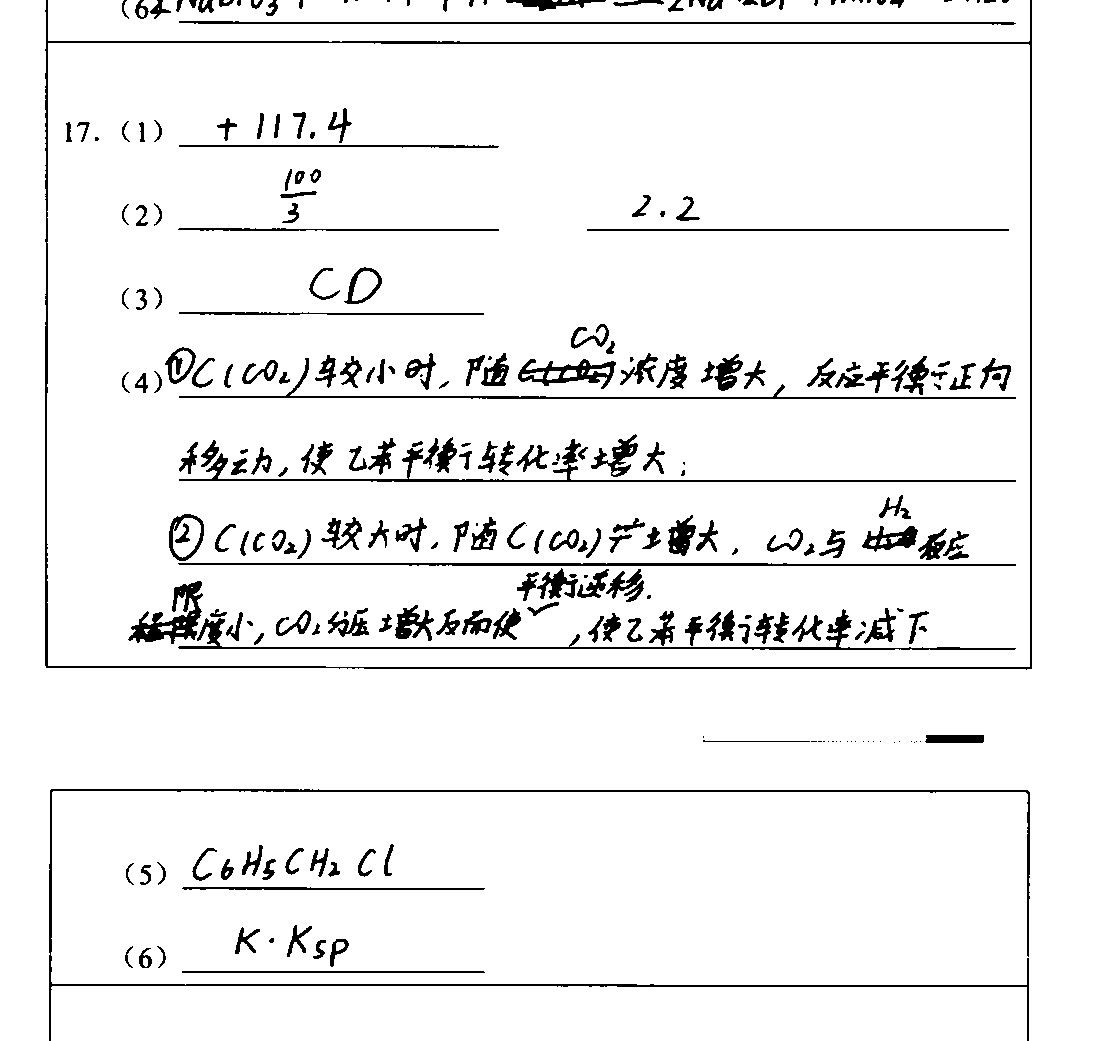 (6) NaBrO₃
17. (1) +117.4
(2) 100/3 2.2
(3) CD
(4) ①C(CO₂)较小时,随CO₂浓度增大,反应平衡正向
移动,使乙苯平衡转化率增大;
②C(CO₂)较大时,随C(CO₂)增大,CO₂与H₂反应
限度小,CO₂分压增大反而使平衡逆移.,使乙苯平衡转化率减下
(5) C₆H₅CH₂Cl
(6) K·Ksp